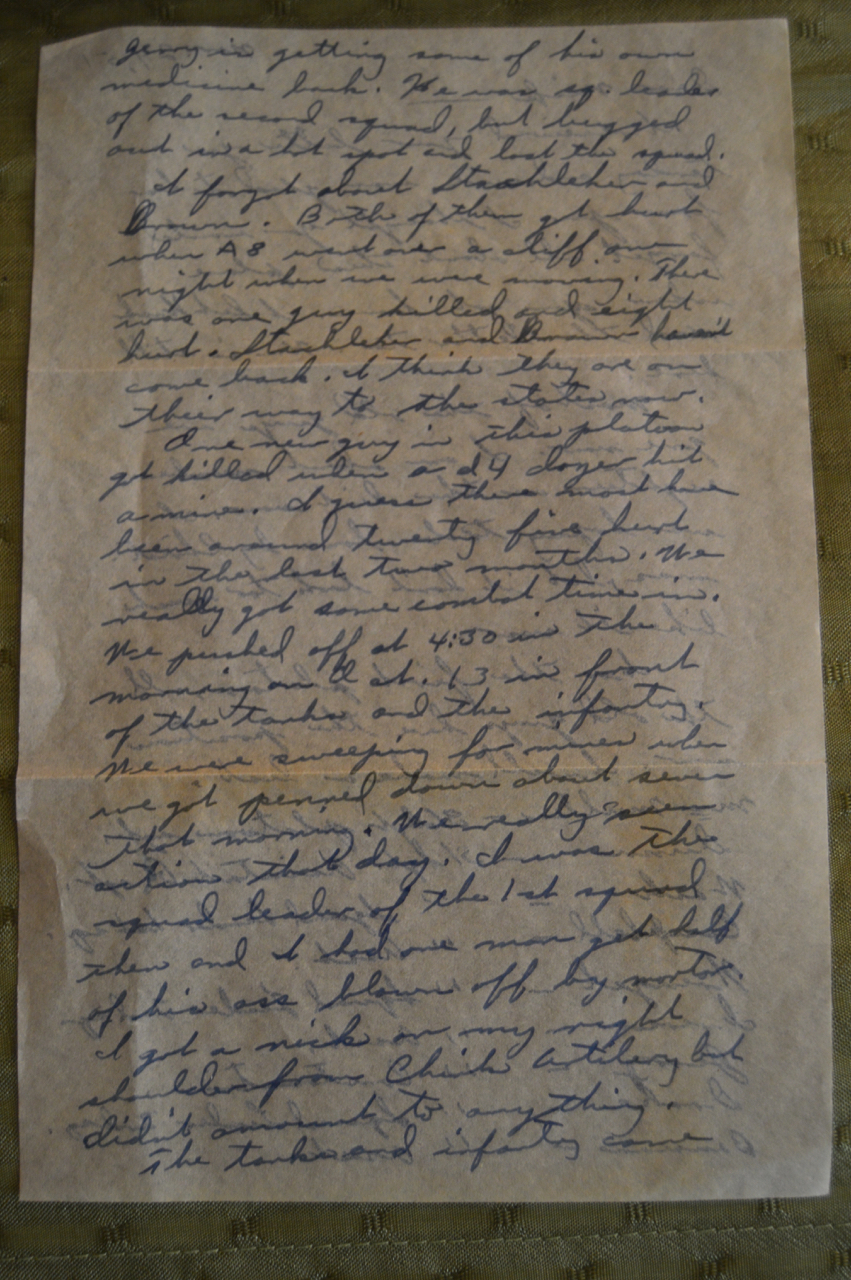 Jerry is getting some of his own
medicine back. He was sq. leader
of the second squad, but bugged
out in a hot spot and lost the squad.
I forgot about Stachleher and
Brown. Both of them got hurt
when A8 went over a cliff one
night when we were moving. There
was one guy killed and eight
hurt. Stachleher and Brown haven't
come back. I think they are on
their way to the states now.
One new guy in this platoon
got killed when a d4 dozer hit
a mine. I guess there most have
been around twenty five hurt
in the last two months. We
really got some combat time in.
We pushed off at 4:30 in the
morning on Oct. 13 in front
of the tanks and the infantry.
We were sweeping for mines when
we got penned down about seven
that morning. We really seen
action that day. I was the
squad leader of the 1st squad
then and I had one man get half
of his ass blown off by mortar.
I got a nick on my right
shoulder from Chink artilery but
didn't amount to anything.
The tanks and infantry came